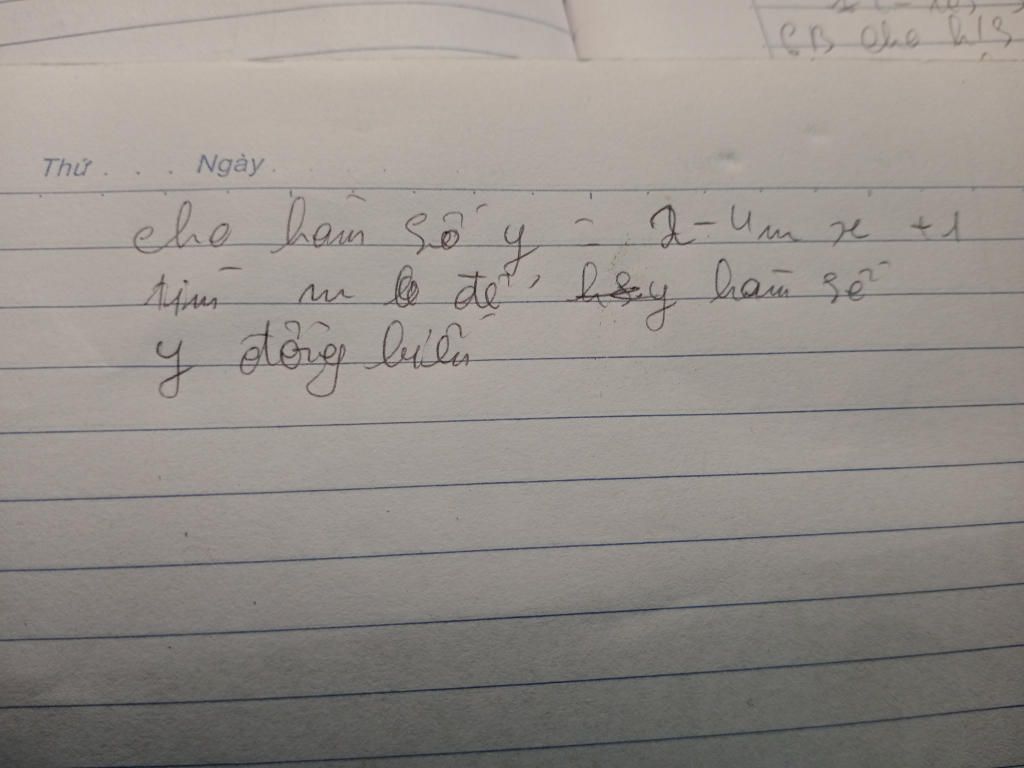 CB cho h/s
Thứ . . . Ngày .
cho hàm số y = 2 - 4m x + 1
tìm m để hàm số
y đồng biến